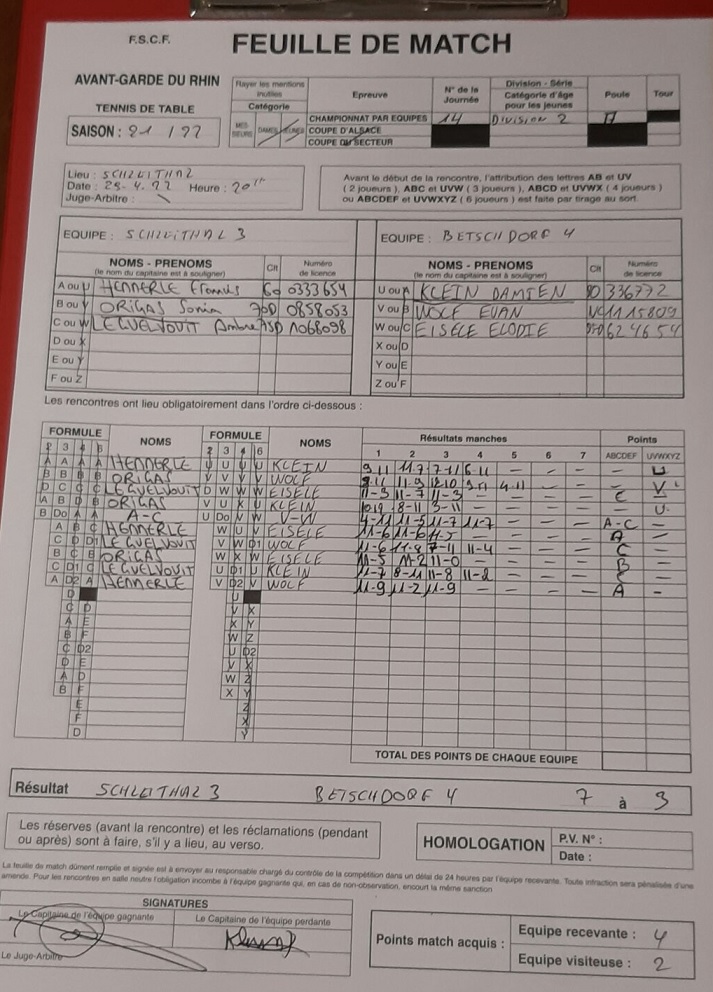 F.S.C.F.
FEUILLE DE MATCH
AVANT-GARDE DU RHIN
TENNIS DE TABLE
SAISON : 21 / 22
Rayer les mentions inutiles
Catégorie
MES-SIEURS DAMES JEUNES
Epreuve
N° de la Journée
Division - Série
Catégorie d'âge pour les jeunes
Poule
Tour
CHAMPIONNAT PAR EQUIPES 14 DIVISION 2
COUPE D'ALSACE
COUPE DU SECTEUR
Lieu : SCHLEITHAL
Date : 25-4.22 Heure : 20H
Juge-Arbitre :
Avant le début de la rencontre, l'attribution des lettres AB et UV
( 2 joueurs ), ABC et UVW ( 3 joueurs ), ABCD et UVWX ( 4 joueurs )
ou ABCDEF et UVWXYZ ( 6 joueurs ) est faite par tirage au sort.
EQUIPE : SCHLEITHAL 3
EQUIPE : BETSCHDORF 4
NOMS - PRENOMS
(le nom du capitaine est à souligner)
Clt
Numéro de licence
NOMS - PRENOMS
(le nom du capitaine est à souligner)
Clt
Numéro de licence
A ou U HENNERLE Francis 0333654
B ou V ORIGAS Sonia 70D 0858053
C ou W LEGUELVOUIT Ambre 1068098
D ou X
E ou Y
F ou Z
U ou A KLEIN DAMIEN 80 336772
V ou B WOLF EVAN NC 1115809
W ou C EISELE ELODIE 624654
X ou D
Y ou E
Z ou F
Les rencontres ont lieu obligatoirement dans l'ordre ci-dessous :
FORMULE NOMS FORMULE NOMS Résultats manches Points
2 3 4 6 2 3 4 6 1 2 3 4 5 6 7 ABCDEF UVWXYZ
A A A A HENNERLE U U U U KLEIN 9-11 11-7 7-11 6-11 - - - - U
B B B B ORIGAS V V V V WOLF 9-11 11-9 12-10 9-11 4-11 - - - V
D C C C LEGUELVOUIT D W W W EISELE 11-3 11-7 11-3 - - - - C -
A B D B ORIGAS V U X U KLEIN 8-11 3-11 - - - - - U
B Do A A A-C U Do V V-W 4-11 11-5 11-7 11-7 - - - A-C -
A B C HENNERLE W U V EISELE 11-6 11-6 11-5 - - - - A -
C D D1 LEGUELVOUIT V W D1 WOLF 11-6 11-8 7-11 11-4 - - - C -
B C B ORIGAS W X W EISELE 11-5 11-2 11-0 - - - - B -
C D1 C LEGUELVOUIT U D1 U KLEIN 11-7 8-11 11-8 11-2 - - - C -
A D2 A HENNERLE V D2 V WOLF 11-9 11-2 11-9 - - - - A -
D U
C D V X
A E X Y
B F W Z
C D2 U D2
D E V X
A D W Z
B F X Y
E Z
F X
D Y
TOTAL DES POINTS DE CHAQUE EQUIPE
Résultat SCHLEITHAL 3 BETSCHDORF 4 7 à 3
Les réserves (avant la rencontre) et les réclamations (pendant
ou après) sont à faire, s'il y a lieu, au verso.
HOMOLOGATION
P.V. N° :
Date :
La feuille de match dûment remplie et signée est à envoyer au responsable chargé du contrôle de la compétition dans un délai de 24 heures par l'équipe recevante. Toute infraction sera pénalisée d'une
amende. Pour les rencontres en salle neutre l'obligation incombe à l'équipe gagnante qui, en cas de non-observation, encourt la même sanction
SIGNATURES
Le Capitaine de l'équipe gagnante
Le Capitaine de l'équipe perdante
Le Juge-Arbitre
Points match acquis :
Equipe recevante : 4
Equipe visiteuse : 2